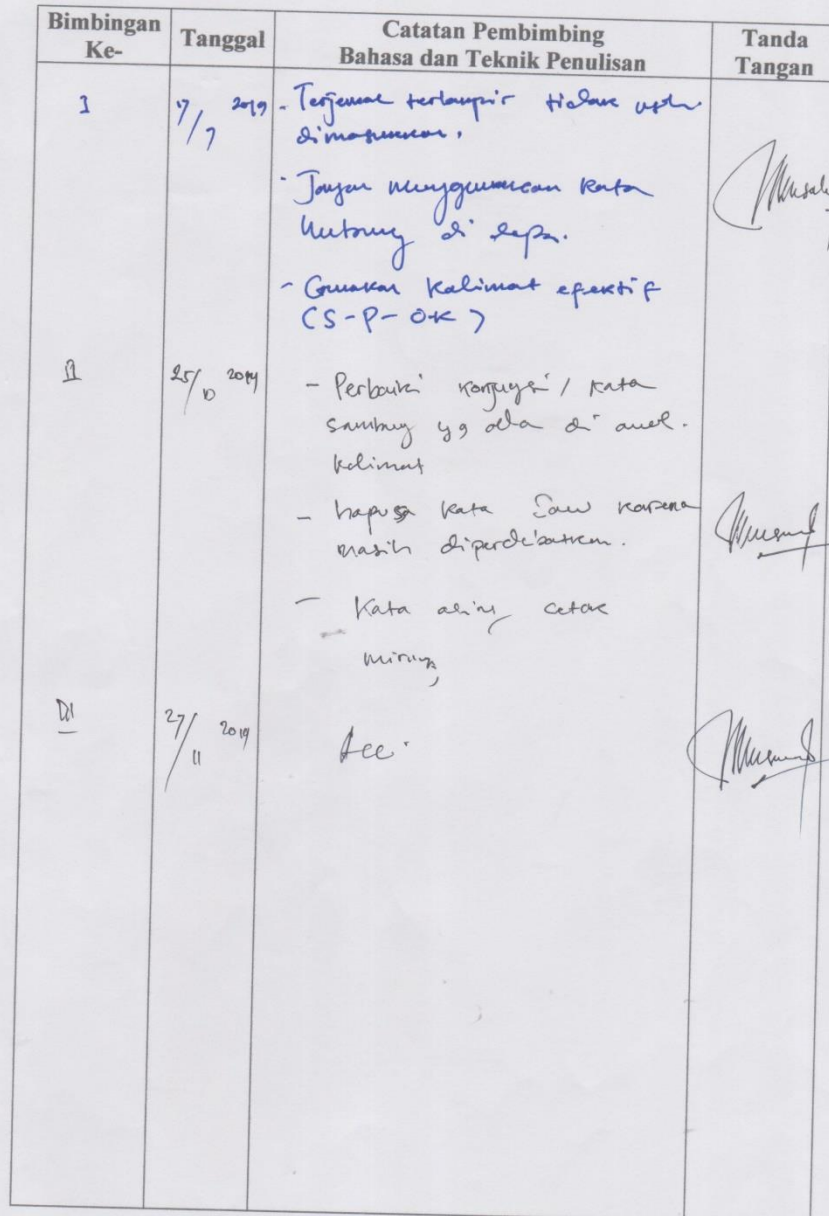 Bimbingan Ke-
Tanggal
Catatan Pembimbing
Bahasa dan Teknik Penulisan
Tanda Tangan
I
17/7 2019
- Terjemah terlampir tidak usah
dimasukkan.
- Jangan menggunakan kata
hubung di depan.
- Gunakan kalimat efektif
(S-P-OK)
II
25/10 2019
- Perbaiki konjugsi / kata
sambung yg ada di awal
kalimat
- hapus kata Saw karena
masih diperdebatkan.
- Kata asing cetak
miring
III
27/11 2019
Acc.